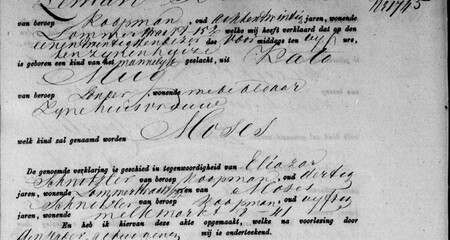 N 1745
van beroep Koopman oud achtentwintig jaren, wonende
welke mij heeft verklaard dat op den
eenentwintigsten dezer des voor middags ten vijf ure,
is geboren een kind van het mannelijk geslacht, uit Kaat
Mug
van beroep zonder wonende mede aldaar
zijne huisvrouw
welk kind zal genaamd worden Moses
De genoemde verklaring is geschied in tegenwoordigheid van Eliazar
Schnitzler van beroep Koopman oud dertig
jaren, wonende en van Moses
Schnitzler van beroep Koopman oud vijftig
jaren, wonende melkmarkt
En heb ik hiervan deze akte opgemaakt, welke na voorlezing door
den vader getuigen mij is onderteekend.